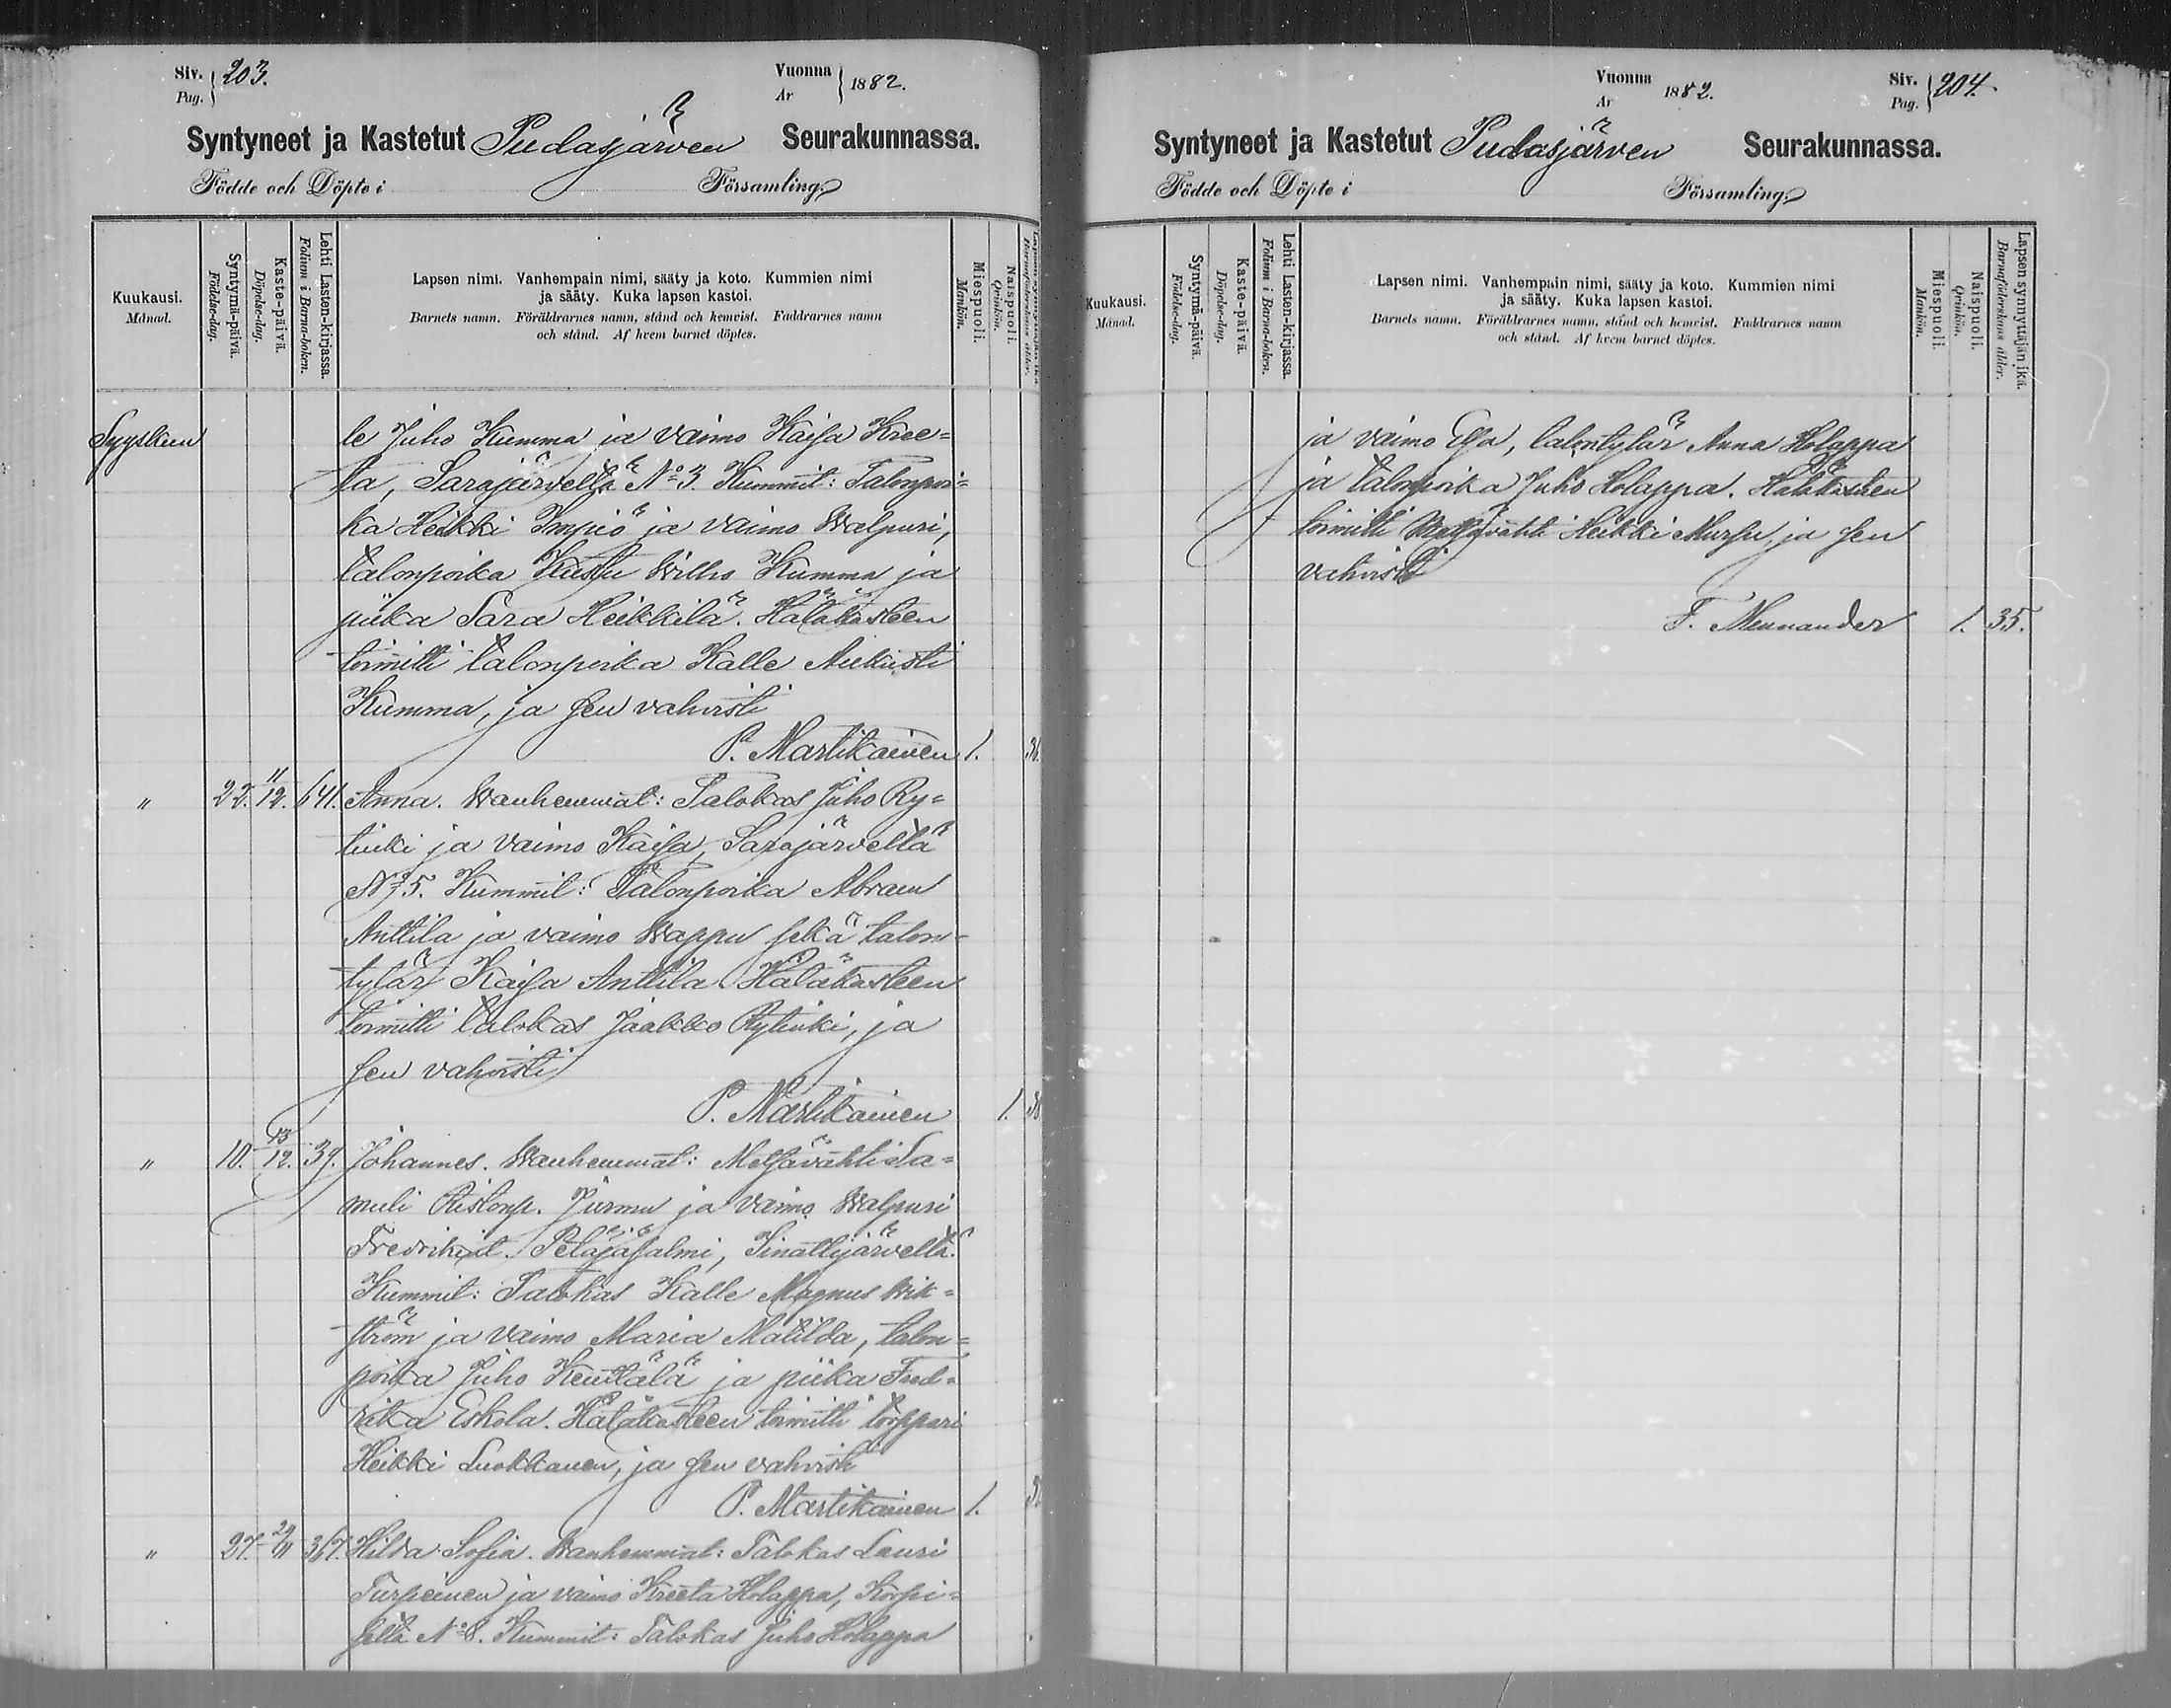 Siv. 203.
Pag.
Vuonna 1882.
Ar
Syntyneet ja Kastetut Pudasjärven Seurakunnassa.
Födde och Döpte i Församling.
Kuukausi.
Månad.
Syntymä-päivä.
Födelse-dag.
Kaste-päivä.
Döpelse-dag.
Lehti Lasten-kirjassa.
Folium i Barna-boken.
Lapsen nimi. Vanhempain nimi, sääty ja koto. Kummien nimi
ja sääty. Kuka lapsen kastoi.
Barnets namn. Föräldrarnes namn, stånd och hemvist. Faddrarnes namn
och stånd. Af hvem barnet döptes.
Miespuoli.
Mankön.
Naispuoli.
Qvinkön.
Syyskuu le Juho Kumma ja vaimo Kaisa Kree=
ta, Sarajärvellä No 3. Kummit: Talonpoi=
ka Heikki Impiö ja vaimo Walpuri,
talonpoika Kustu Wilho Kumma ja
piika Sara Heikkilä. Hätäkasteen
toimitti talonpoika Kalle Aukusti
Kumma, ja sen vahvisti
P. Martikainen 1.
" 22. 11/12. 641. Anna. Wanhemmat: Talokas Juho Ry=
tinki ja vaimo Kaisa, Sarajärvellä
No 5. Kummit: Talonpoika Abram
Anttila ja vaimo Wappu sekä talon=
tytär Kaisa Anttila. Hätäkasteen
toimitti talokas Jaakko Rytinki, ja
sen vahvisti
P. Martikainen 1.
" 10. 13/12. 39. Johannes. Wanhemmat: Metsävahti Sa=
muli Ristonp. Jurmu ja vaimo Walpuri
Fredrikint. Petäjäsalmi, Sinattijärvellä.
Kummit: Talokas Kalle Magnus Wik=
ström ja vaimo Maria Matilda, talon=
poika Juho Kenttälä ja piika Fred=
rika Eskola. Hätäkasteen toimitti torppari
Heikki Luokkanen, ja sen vahvisti
P. Martikainen 1.
" 27. 29/11 367. Hilda Sofia. Wanhemmat: Talokas Lauri
Turpeinen ja vaimo Kreeta Holappa, Korpi=
sella No 8. Kummit: Talokas Juho Holappa
Vuonna 1882.
Ar
Siv. 204.
Pag.
Syntyneet ja Kastetut Pudasjärven Seurakunnassa.
Födde och Döpte i Församling.
Kuukausi.
Månad.
Syntymä-päivä.
Födelse-dag.
Kaste-päivä.
Döpelse-dag.
Lehti Lasten-kirjassa.
Folium i Barna-boken.
Lapsen nimi. Vanhempain nimi, sääty ja koto. Kummien nimi
ja sääty. Kuka lapsen kastoi.
Barnets namn. Föräldrarnes namn, stånd och hemvist. Faddrarnes namn
och stånd. Af hvem barnet döptes.
Miespuoli.
Mankön.
Naispuoli.
Qvinkön.
Lapsen synnyttäjän ikä.
Barnaföderskans ålder.
ja vaimo Elsa, talontytär Anna Holappa
ja talonpoika Juho Holappa. Hätäkasteen
toimitti Metsävahti Heikki Mursu, ja sen
vahvisti
F. Mennander 1. 35.